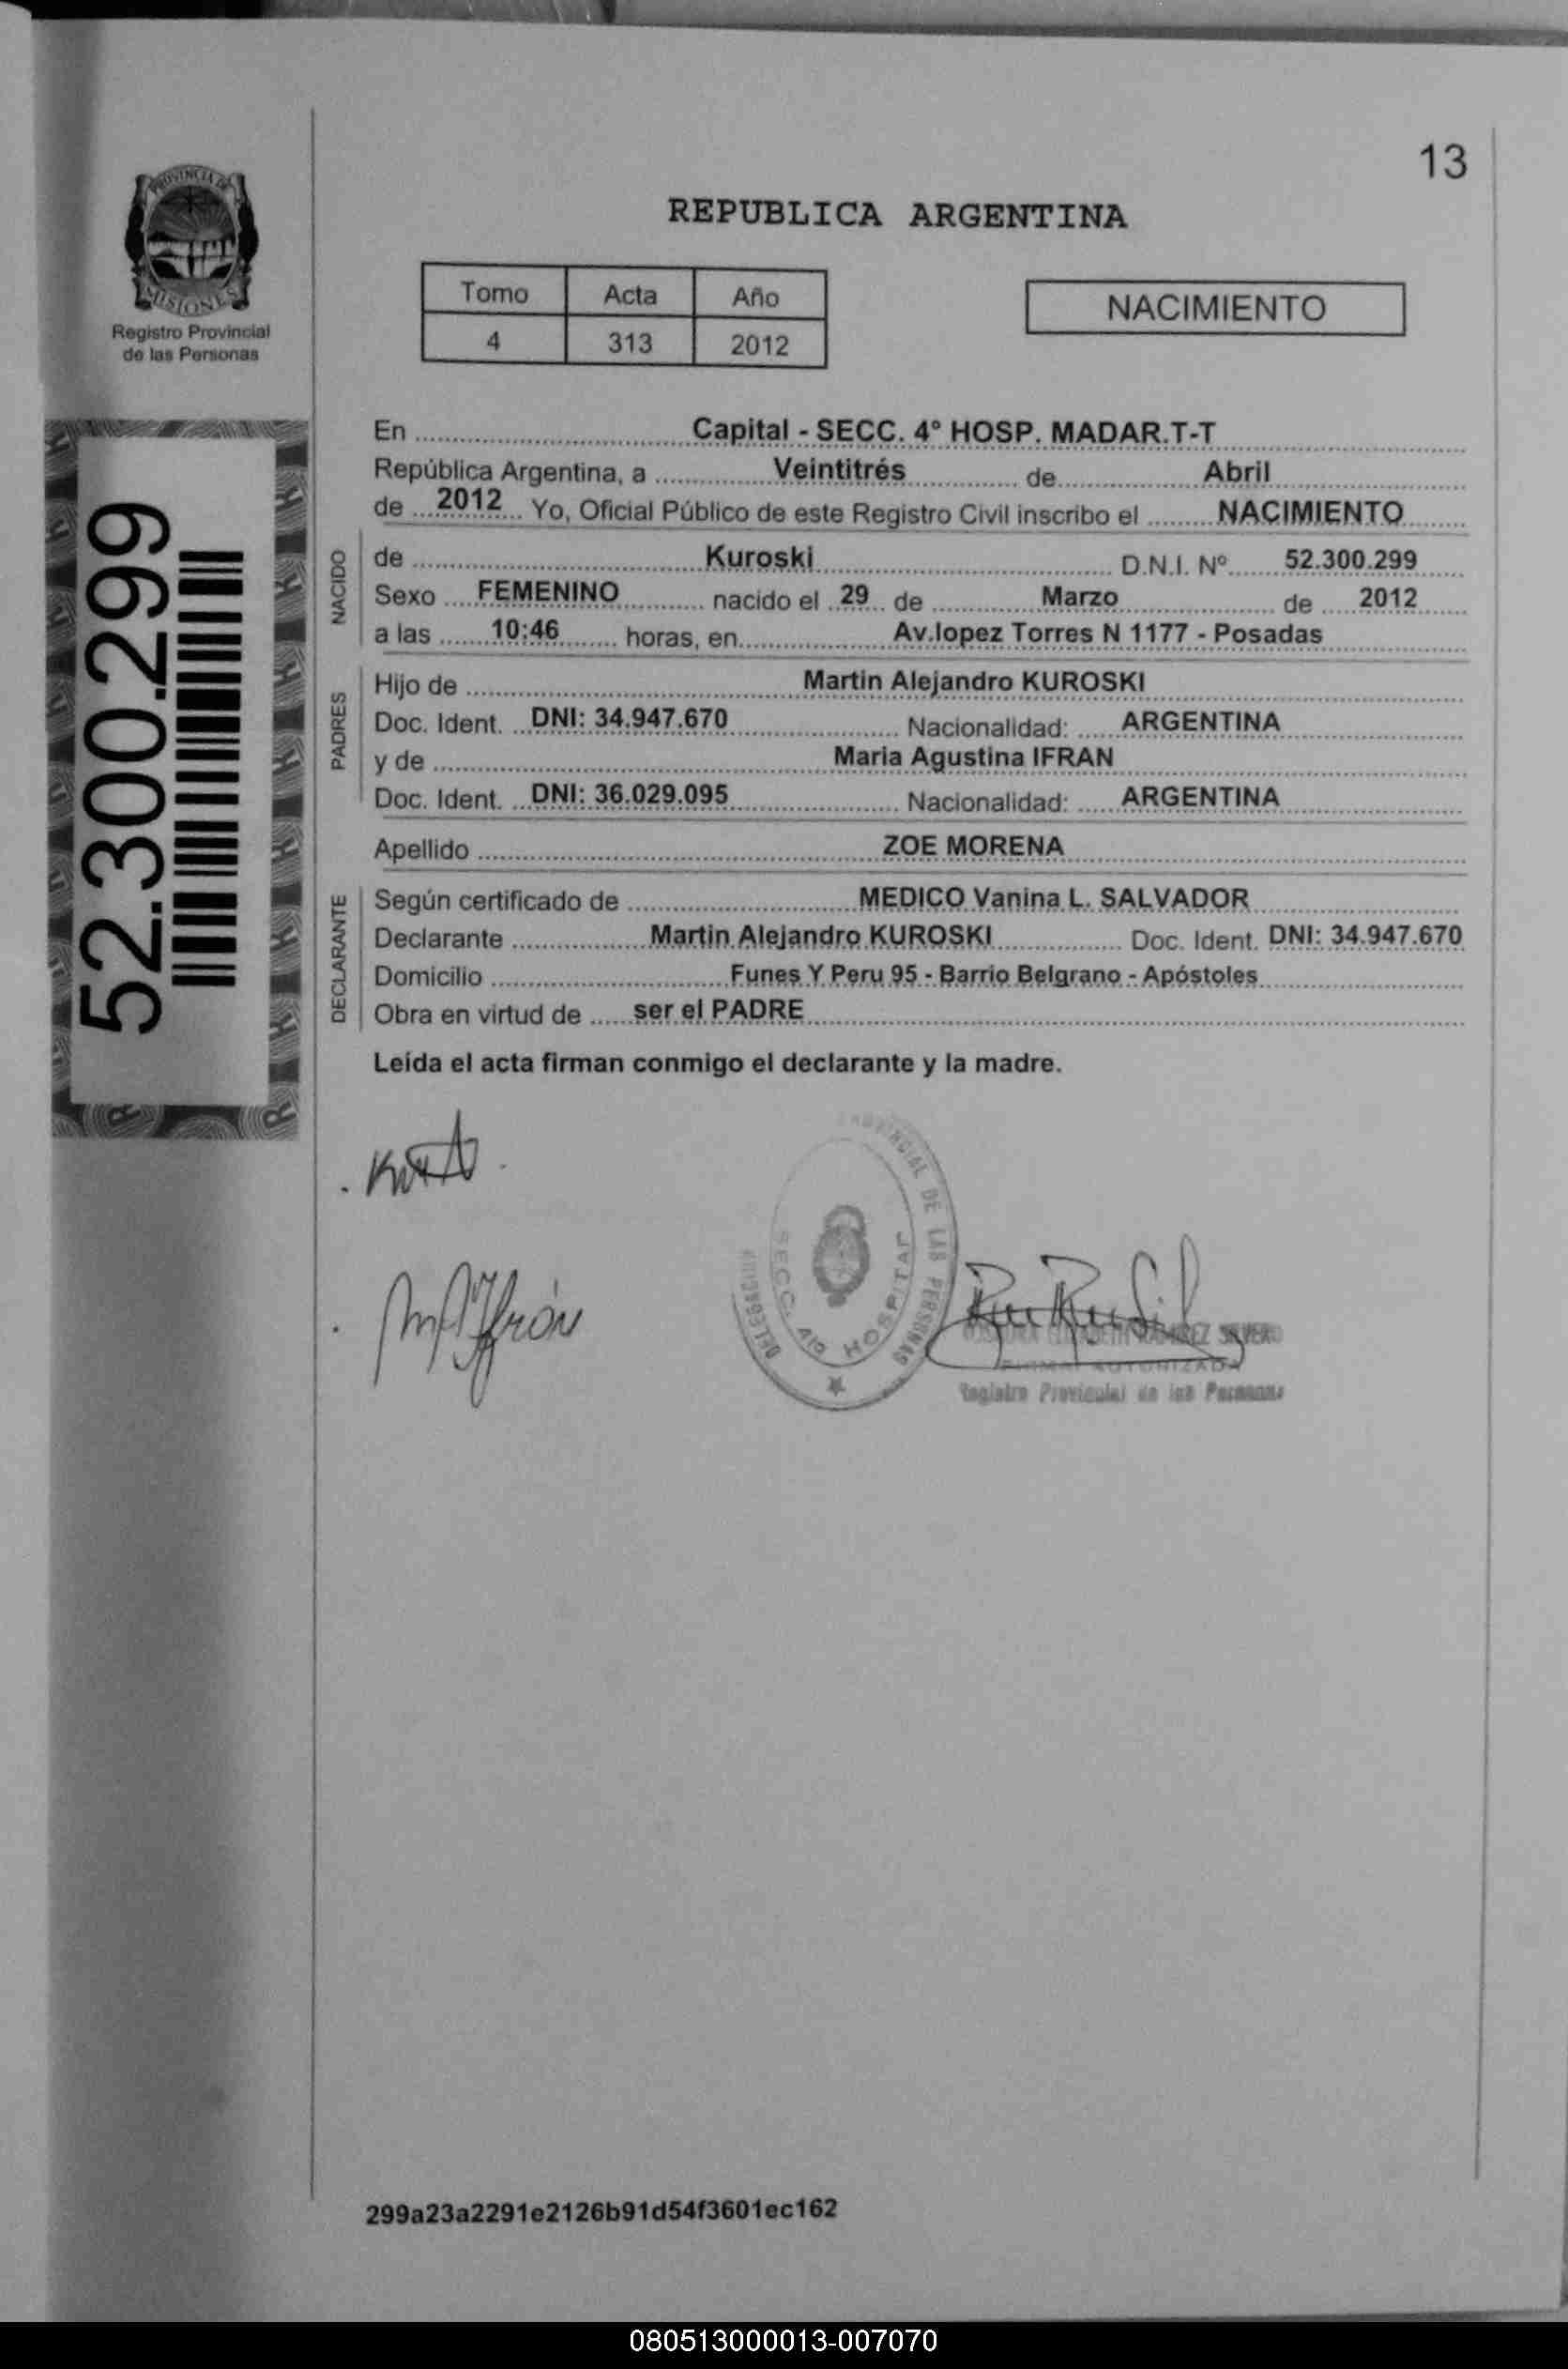 13
PROVINCIA DE
MISIONES
Registro Provincial
de las Personas
REPUBLICA ARGENTINA
Tomo Acta Año
4 313 2012
NACIMIENTO
52.300.299
En Capital - SECC. 4º HOSP. MADAR.T-T
República Argentina, a Veintitrés de Abril
de 2012 Yo, Oficial Público de este Registro Civil inscribo el NACIMIENTO
NACIDO
de Kuroski D.N.I. Nº 52.300.299
Sexo FEMENINO nacido el 29 de Marzo de 2012
a las 10:46 horas, en Av.lopez Torres N 1177 - Posadas
PADRES
Hijo de Martin Alejandro KUROSKI
Doc. Ident. DNI: 34.947.670 Nacionalidad: ARGENTINA
y de Maria Agustina IFRAN
Doc. Ident. DNI: 36.029.095 Nacionalidad: ARGENTINA
Apellido ZOE MORENA
DECLARANTE
Según certificado de MEDICO Vanina L. SALVADOR
Declarante Martin Alejandro KUROSKI Doc. Ident. DNI: 34.947.670
Domicilio Funes Y Peru 95 - Barrio Belgrano - Apóstoles
Obra en virtud de ser el PADRE
Leída el acta firman conmigo el declarante y la madre.
DELEGACION PROVINCIAL DE LAS PERSONAS
SECC. 4ta HOSPITAL
FIRMA AUTORIZADA
Registro Provincial de las Personas
299a23a2291e2126b91d54f3601ec162
080513000013-007070